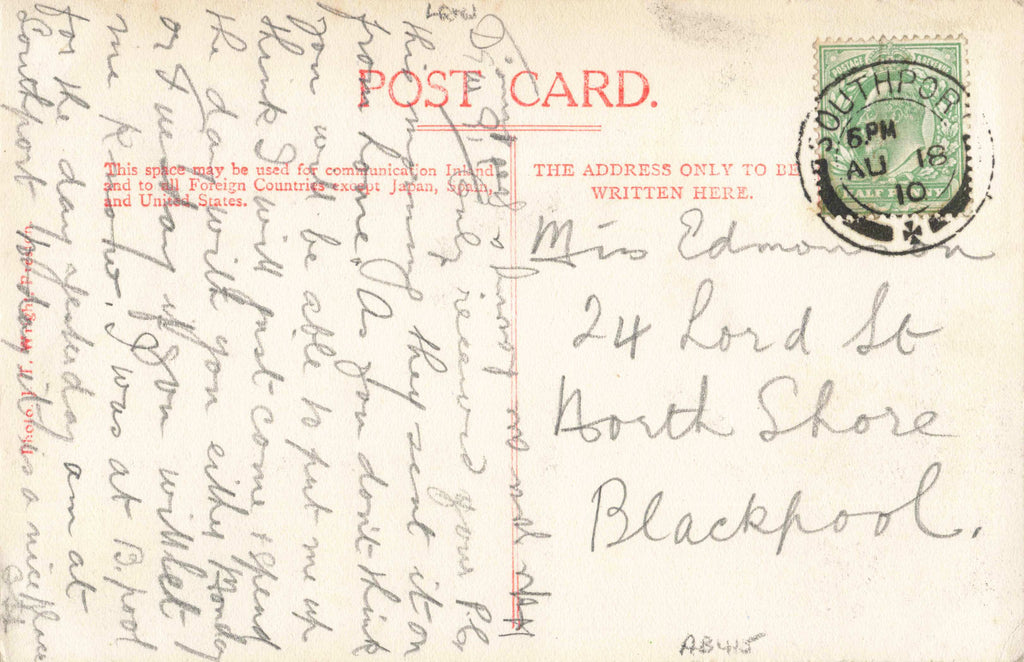 POST CARD.
This space may be used for communication Inland
and to all Foreign Countries except Japan, Spain,
and United States.
THE ADDRESS ONLY TO BE
WRITTEN HERE.
SOUTHPORT
6. PM
AU 18
10
POSTAGE & REVENUE
HALF PENNY
Miss Edmondson
24 Lord St
North Shore
Blackpool.
only received your P.C.
this morning they sent it on
from home. As you don't think
you will be able to put me up
think I will just come & spend
the day with you either Monday
or Tuesday if you will let
me know. I was at B. pool
for the day yesterday am at
Southport today it is a nice place
AB415